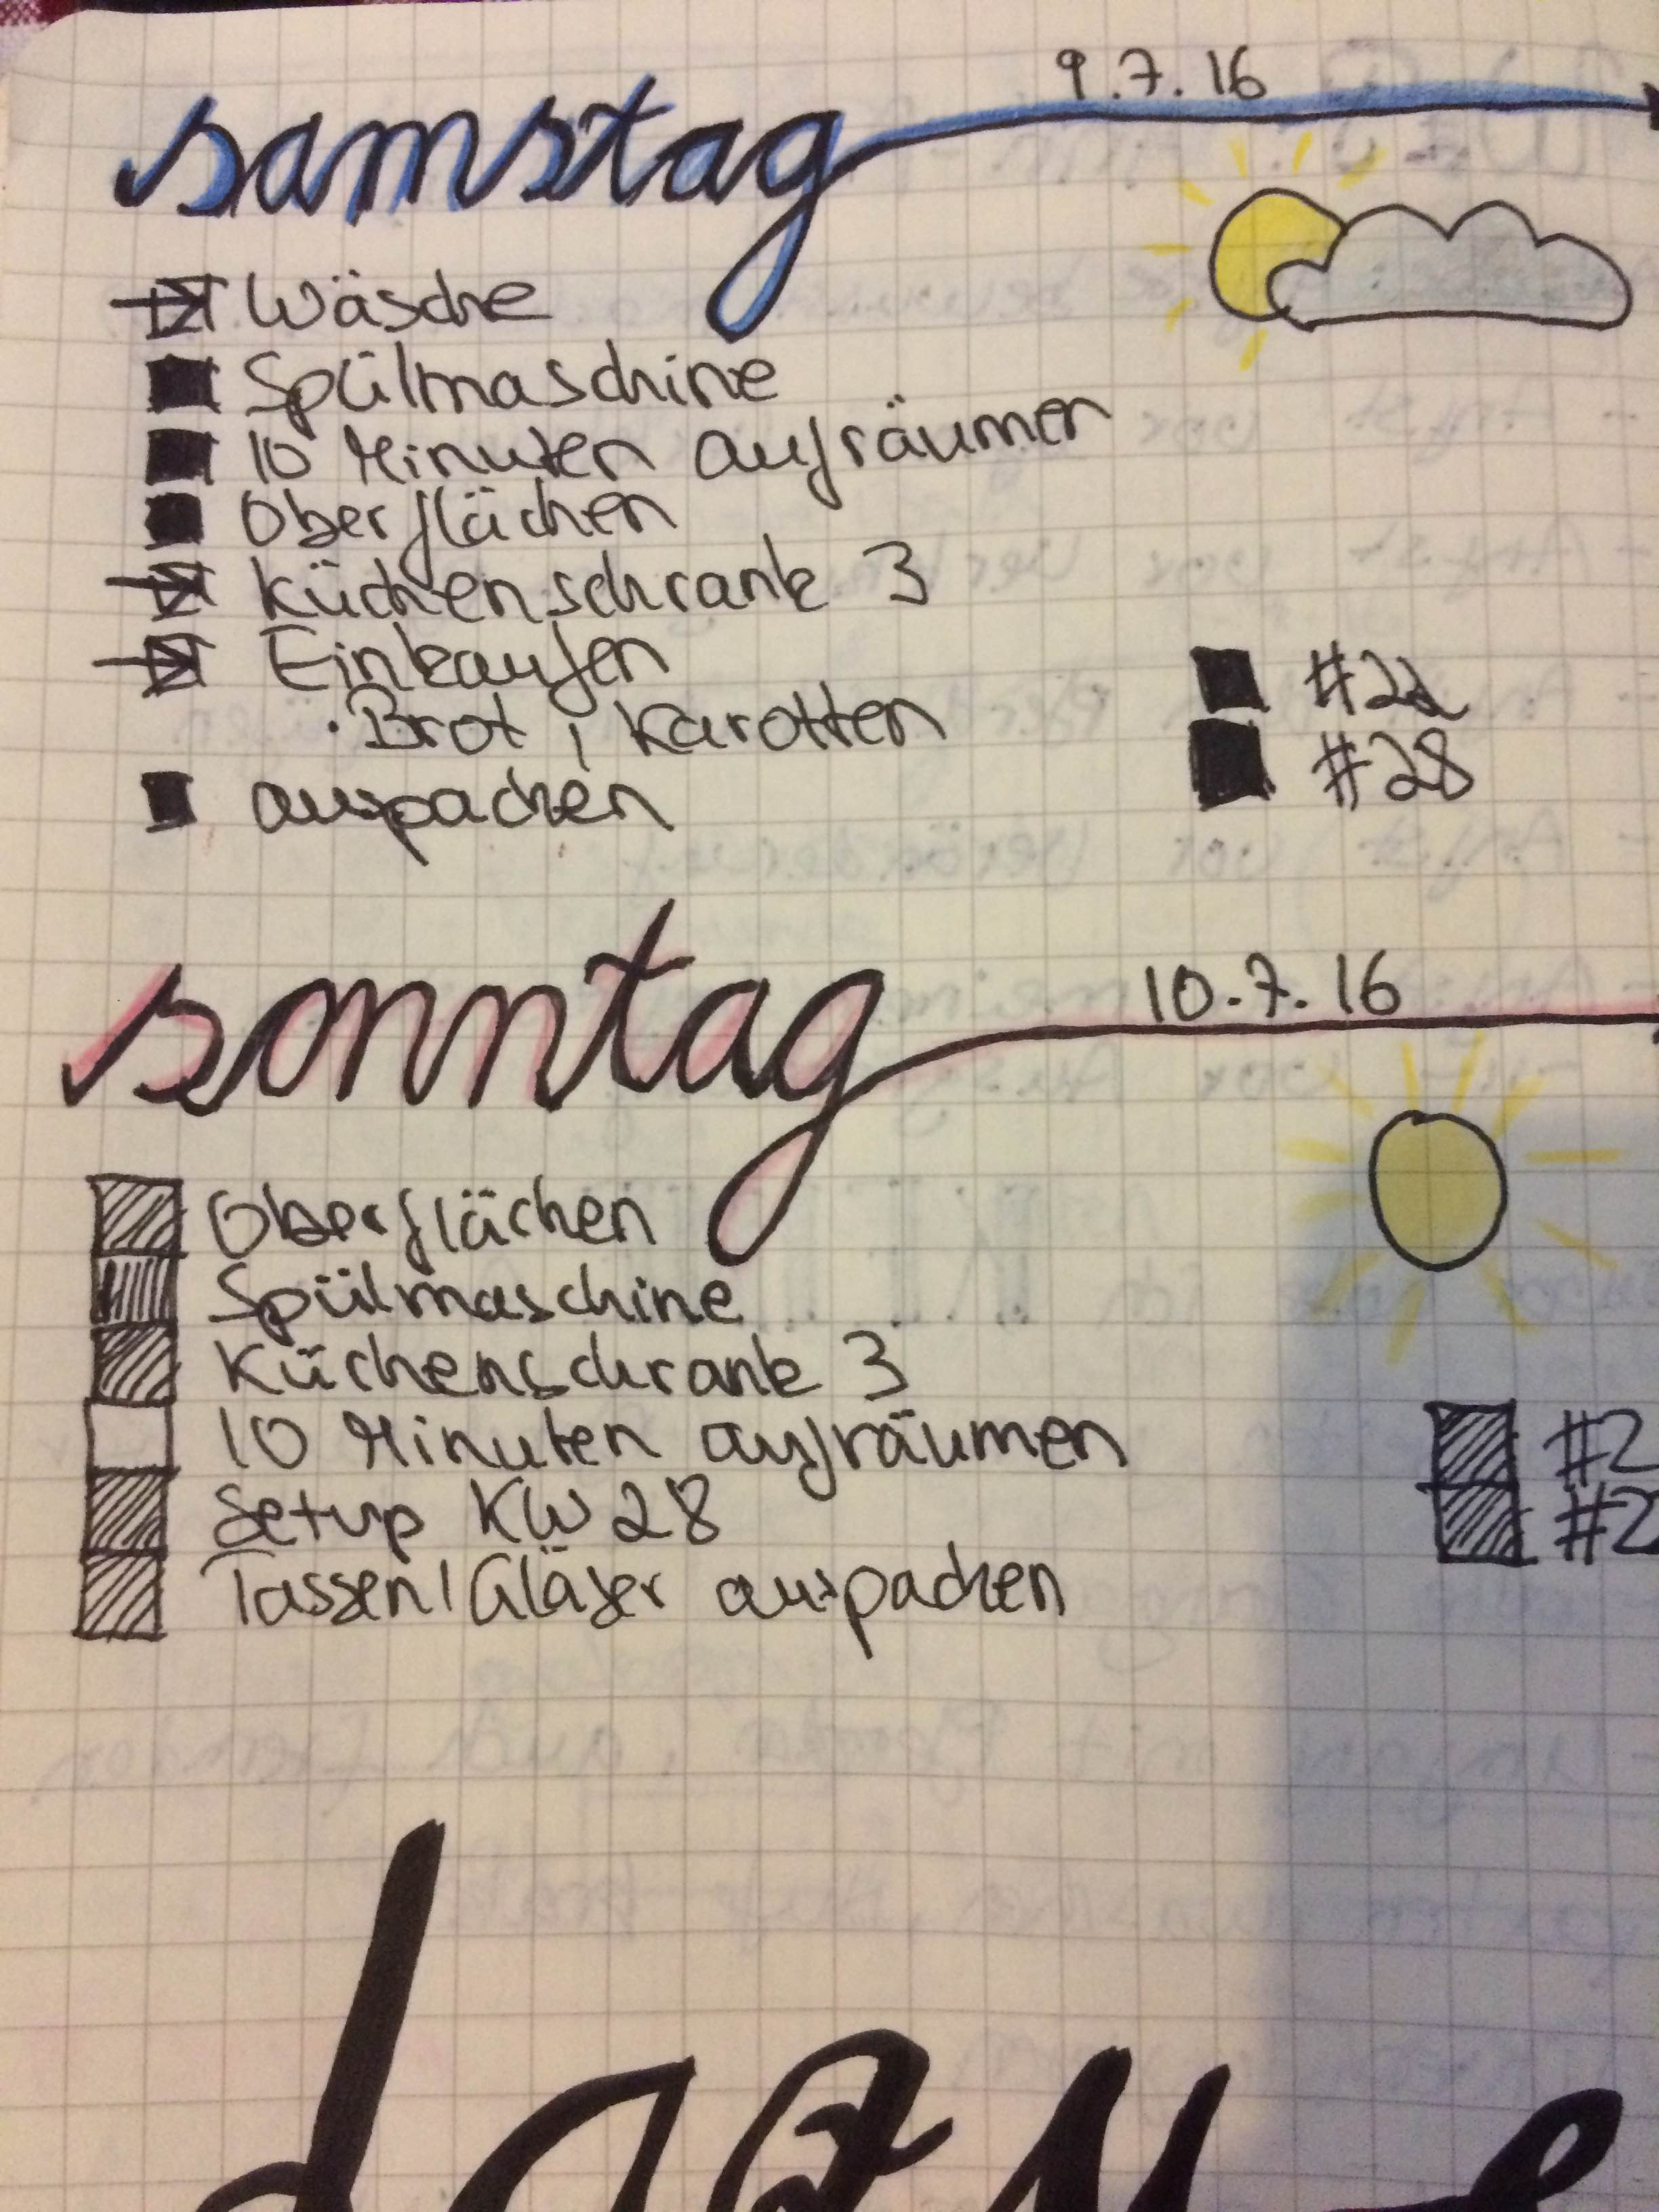 samstag 9.7.16
Wäsche
Spülmaschine
10 Minuten aufräumen
Oberflächen
Küchenschrank 3
Einkaufen
· Brot, Karotten
#22
#28
auspacken
sonntag 10.7.16
Oberflächen
Spülmaschine
Küchenschrank 3
10 Minuten aufräumen
#2
Setup KW 28
#2
Tassen/Gläser auspacken